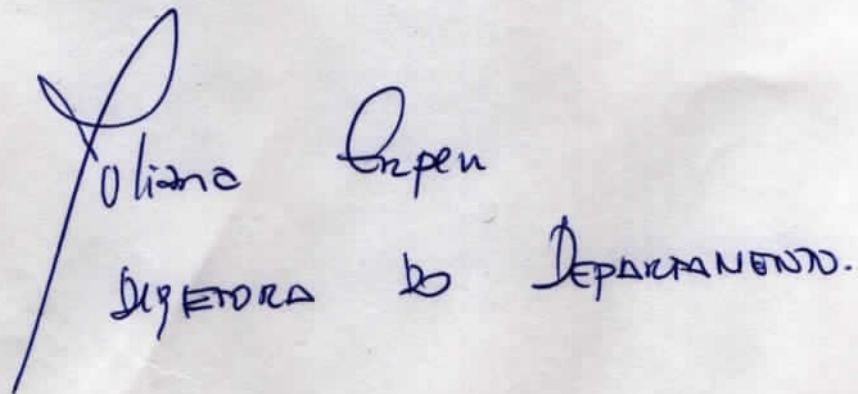 Juliana Erpen
DIRETORA DO DEPARTAMENTO.